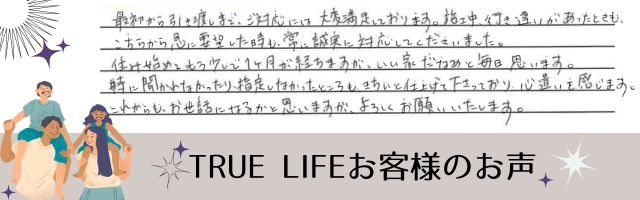 最初から引き渡しまで、ご対応には大変満足しております。施工中、行き違いがあったときも、
こちらから急に要望した時も、常に誠実に対応してくださいました。
住み始めてもう少しで1ヶ月が経ちますが、いい家だなぁと毎日思います。
特に聞かれなかったり、指定しなかったところも、きちんと仕上げて下さっており、心遣いを感じます。
これからも、お世話になるかと思いますが、よろしくお願いいたします。
TRUE LIFEお客様のお声